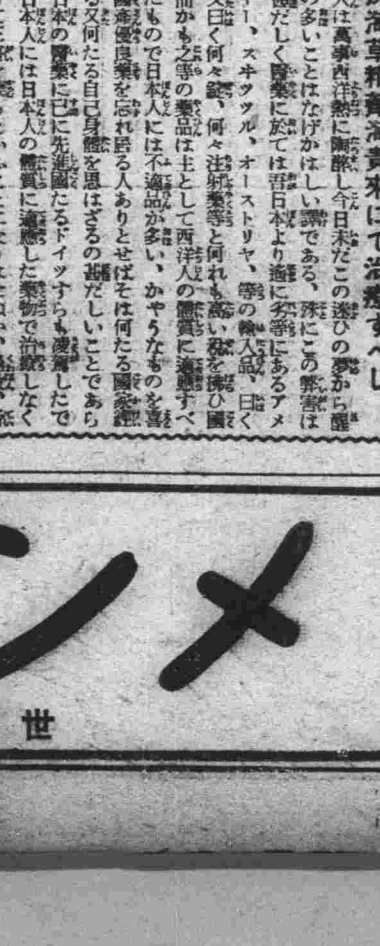 治療すべし
は萬事西洋熱に陶醉し今日未だこの迷ひの夢から醒
の多いことはなげかはしい譯である、殊にこの弊害は
だしく醫藥に於ては吾日本より遙に劣等にあるアメ
ー、スヰツツル、オーストリヤ、等の輸入品、曰く
又曰く何々錠、何々注射藥等と何れも高い稅を拂ひ國
而かも之等の藥品は主として西洋人の體質に適應すべ
たもので日本人には不適品が多い、かやうなものを喜
國產優良藥を忘れ居る人ありとせばそは何たる國家經
る又何たる自己身體を思はざるの甚だしいことであら
日本の醫藥に已に先進國たるドイツすらも凌駕したで
日本人には日本人の體質に適應した藥物で治療しなく
メン
世